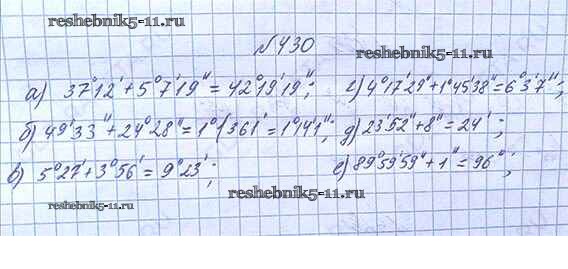 reshebnik5-11.ru
№430
а) 37°12' + 5°7'19" = 42°19'19";
г) 4°17'29" + 1°45'38" = 6°3'7";
б) 49'33" + 24°28" = 1°1(361' = 1°14'1";
д) 23'52" + 8" = 24';
в) 5°27' + 3°56' = 9°23';
е) 89°59'59" + 1" = 96°;
reshebnik5-11.ru
reshebnik5-11.ru